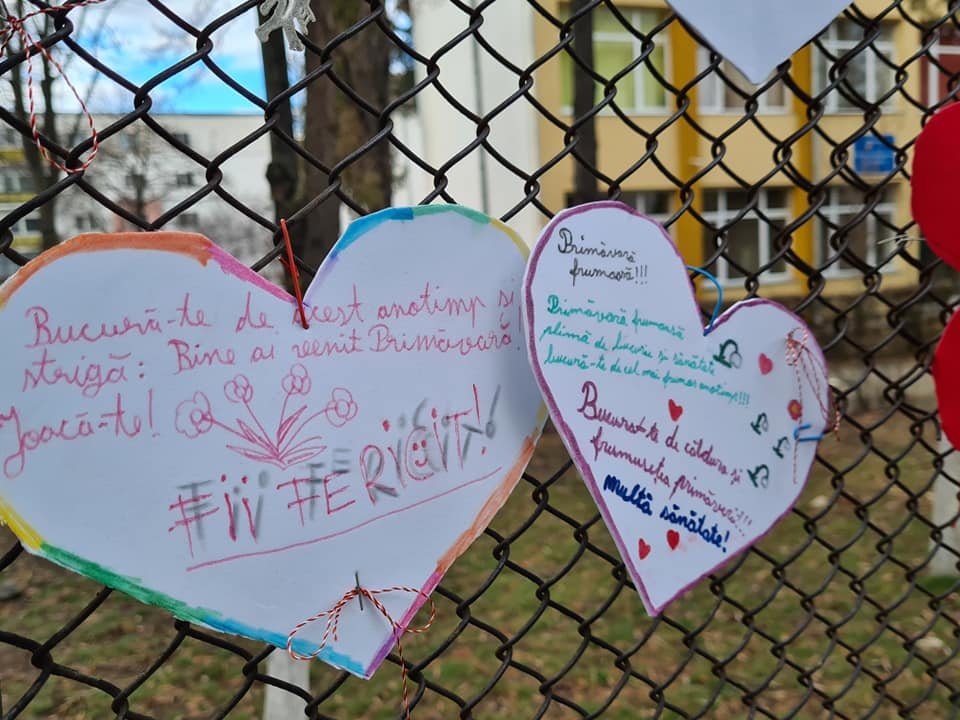 Bucură-te de acest anotimp și
strigă: Bine ai venit Primăvară!
Joacă-te!
Fii FERICIT!
Primăvară
frumoasă!!!
Primăvară frumoasă
plină de bucurii și sănătate
bucură-te de cel mai frumos anotimp!!!
Bucurat-te de căldura și
frumusețea primăverii!!!
multă sănătate!